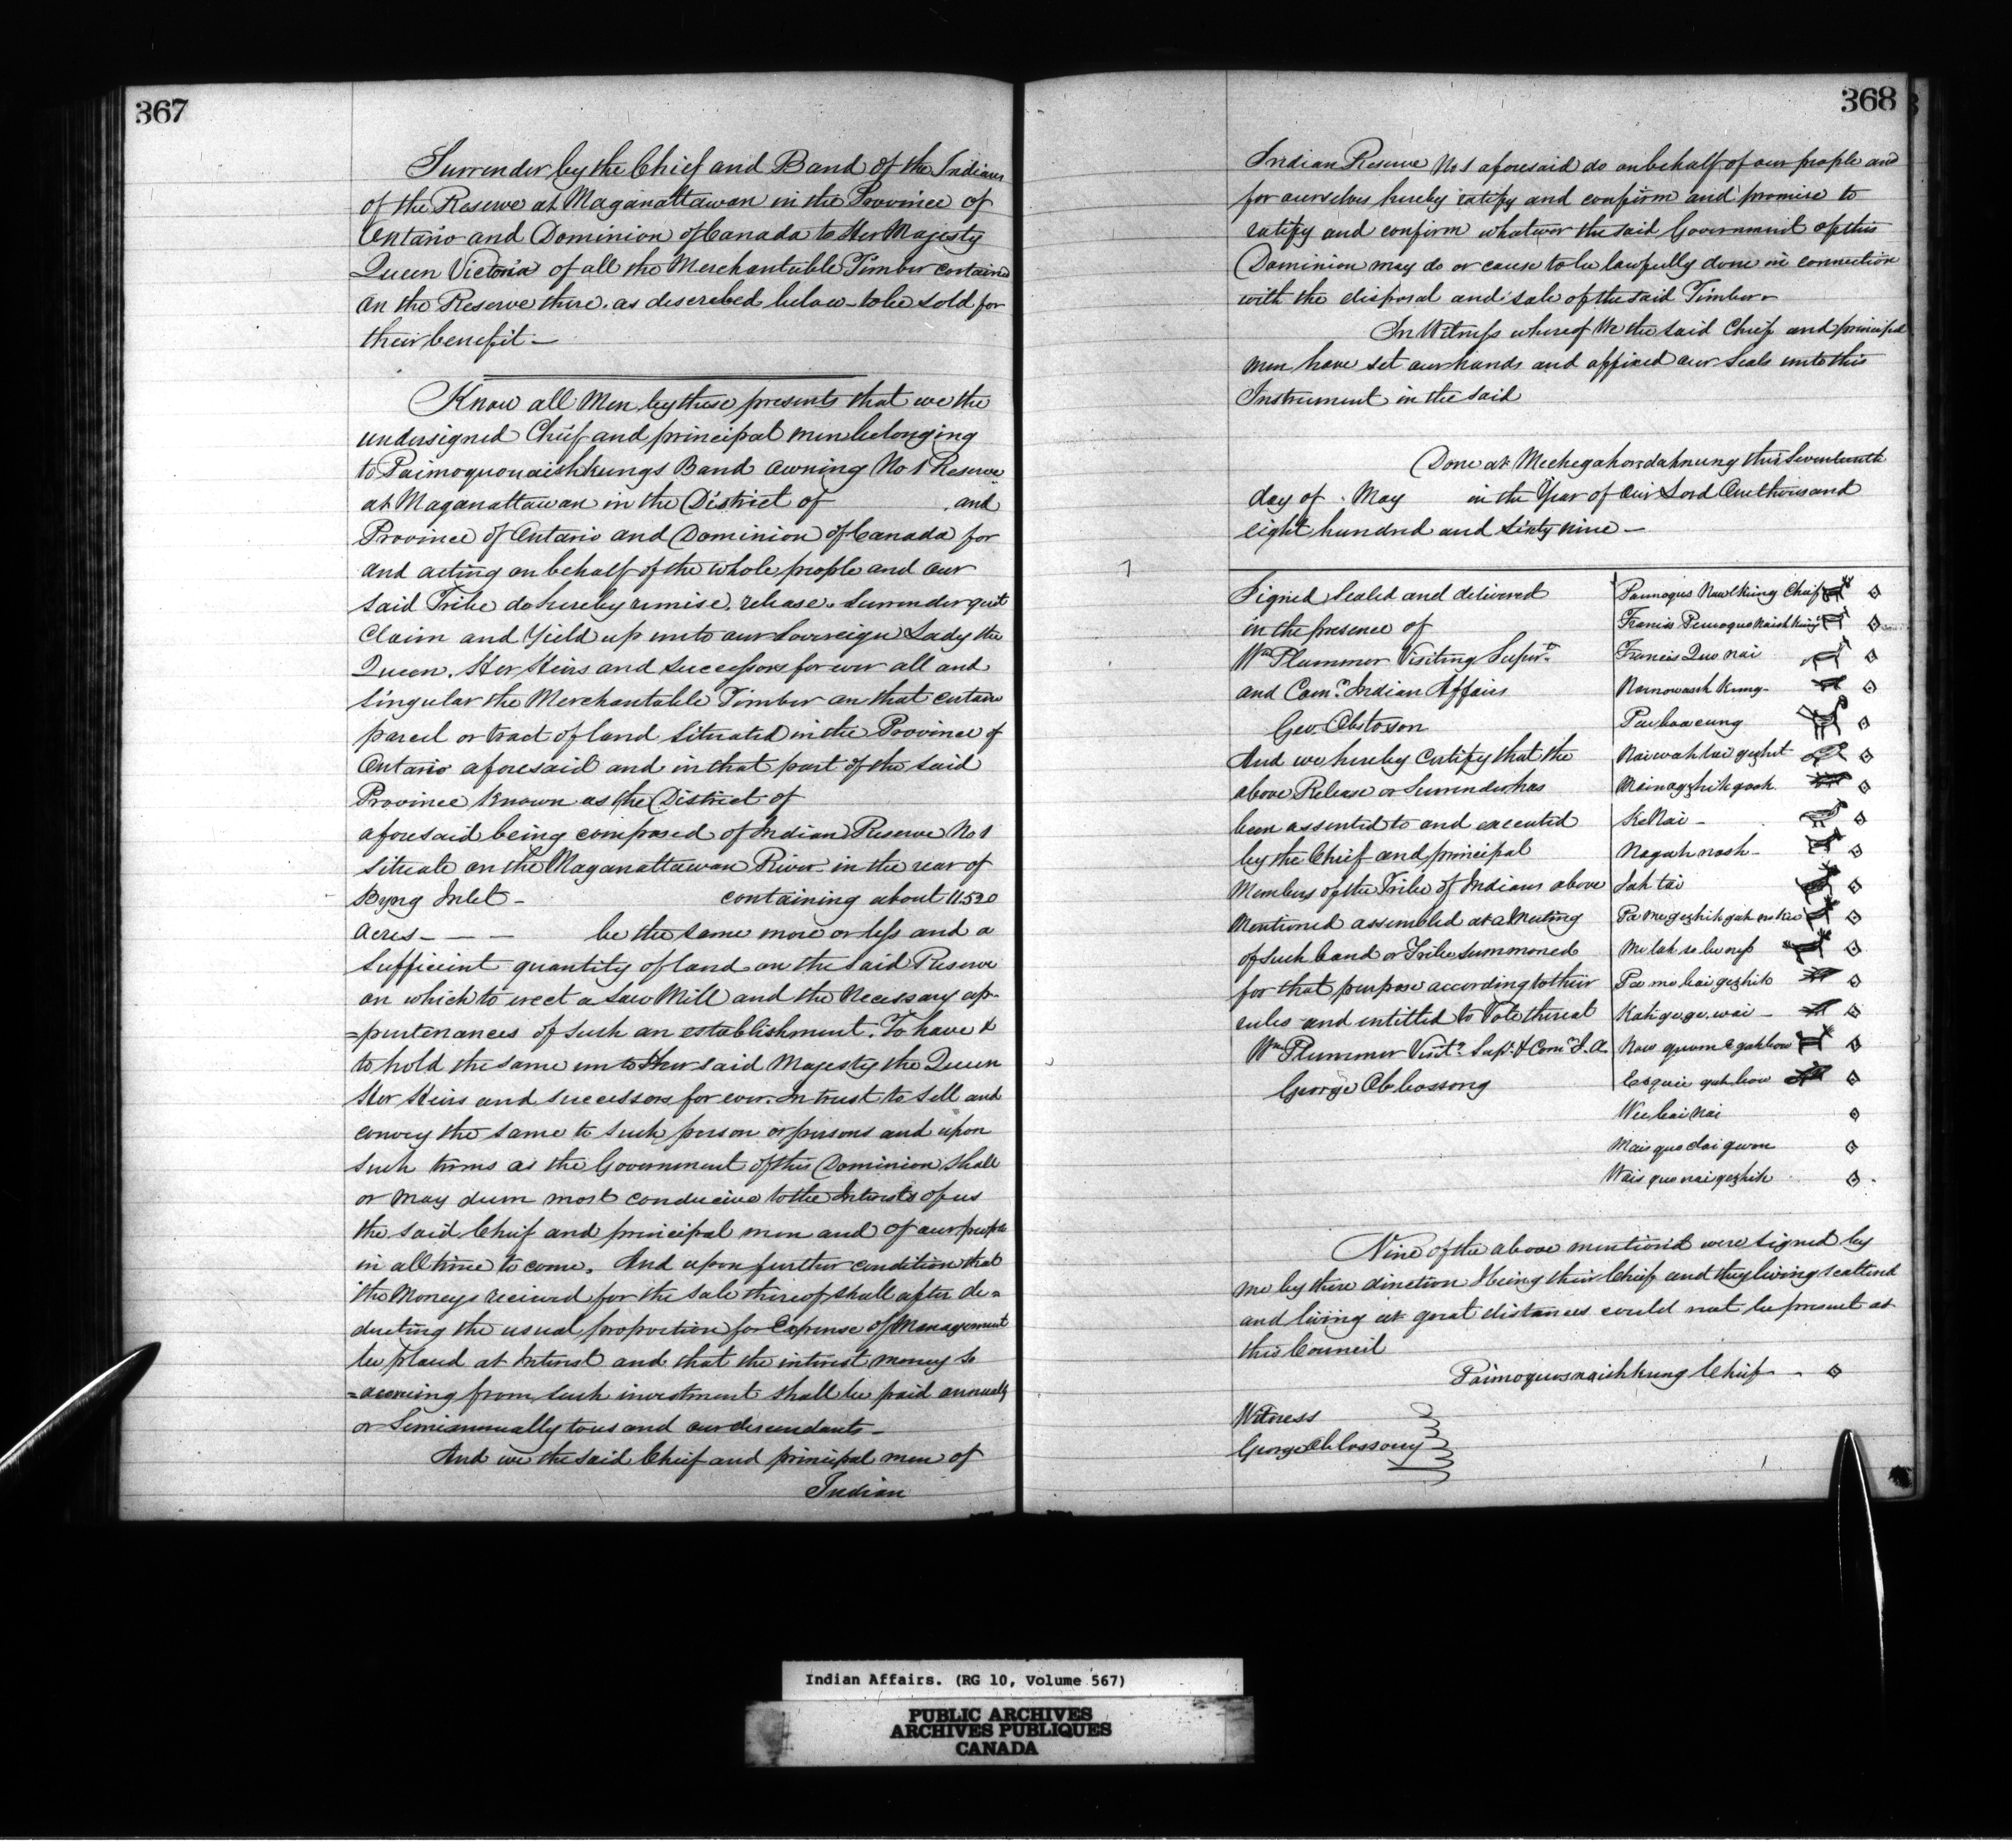 367
Surrender by the Chief and Band of the Indians
of the Reserve at Maganattawan in the Province of
Ontario and Dominion of Canada to Her Majesty
Queen Victoria of all the Merchantable Timber contained
on the Reserve there. as described below to be sold for
their benefit —
Know all Men by these presents that we the
undersigned Chief and principal men belonging
to Paimoquonaishkungs Band owning No 1 Reserve
at Maganattawan in the District of and
Province of Ontario and Dominion of Canada for
and acting on behalf of the whole people and our
said Tribe do hereby remise, release, surrender quit
Claim and Yield up unto our Sovereign Lady the
Queen. Her Heirs and successors for ever all and
singular the Merchantable Timber on that certain
parcel or tract of land situated in the Province of
Ontario aforesaid and in that part of the said
Province known as the District of
aforesaid being composed of Indian Reserve No 1
situate on the Maganattawan River in the rear of
Byng Inlet - containing about 11.520
acres - — — be the same more or less and a
sufficient quantity of land on the said Reserve
on which to erect a Saw Mill and the necessary ap-
=purtenances of such an establishment. To have &
to hold the same unto Her said Majesty the Queen
Her Heirs and successors for ever. In trust to sell and
convey the same to such person or persons and upon
such terms as the Government of this Dominion shall
or may deem most conducive to the Interests of us
the said Chief and principal men and of our people
in all time to come. And upon further condition that
the Moneys received for the sale thereof shall after de=
ducting the usual proportion for Expense of Management
be placed at Interest and that the interest money so
=accruing from such investment shall be paid annually
or Semiannually to us and our descendants —
And we the said Chief and principal men of
Indian
368
Indian Reserve No 1 aforesaid do on behalf of our people and
for ourselves hereby ratify and confirm and promise to
ratify and confirm whatever the said Government of this
Dominion may do or cause to be lawfully done in connection
with the disposal and sale of the said Timber.
In Witness whereof We the said Chief and principal
men have set our hands and affixed our Seals unto this
Instrument in the said
Done at Mechegahondahnung this Seventeenth
day of May in the Year of Our Lord One thousand
eight hundred and sixty nine —
Signed Sealed and delivered
in the presence of
Wm Plummer Visiting Supert
and Comr. Indian Affairs
Geo. Abtosson
And we hereby Certify that the
above Release or Surrender has
been assented to and executed
by the Chief and principal
Members of the Tribe of Indians above
Mentioned assembled at a Meeting
of such band or Tribe summoned
for that purpose according to their
rules and entitled to Vote thereat
Wm Plummer Visitg. Supt. & Comr I. A.
George
Chief
Francis
Francis Quo nai
Nainowash kung
Pai baa cung
Naiwahtai gezhit
Mainagzhik gook
KeNai -
Nagah nash -
Jah tai
Pa mo bai gezhik
Kah ge ge. wai -
Esquii gah bow
Wee bai nai
Mais quo dai gwon
Wais quo nai gezhik
Nine of the above mention'd were signed by
me by there direction I being their Chief and they living scattered
and living at great distances could not be present at
this Council
Paimoquosnaishkung Chief
Witness
George
Indian Affairs. (RG 10, Volume 567)
PUBLIC ARCHIVES
ARCHIVES PUBLIQUES
CANADA